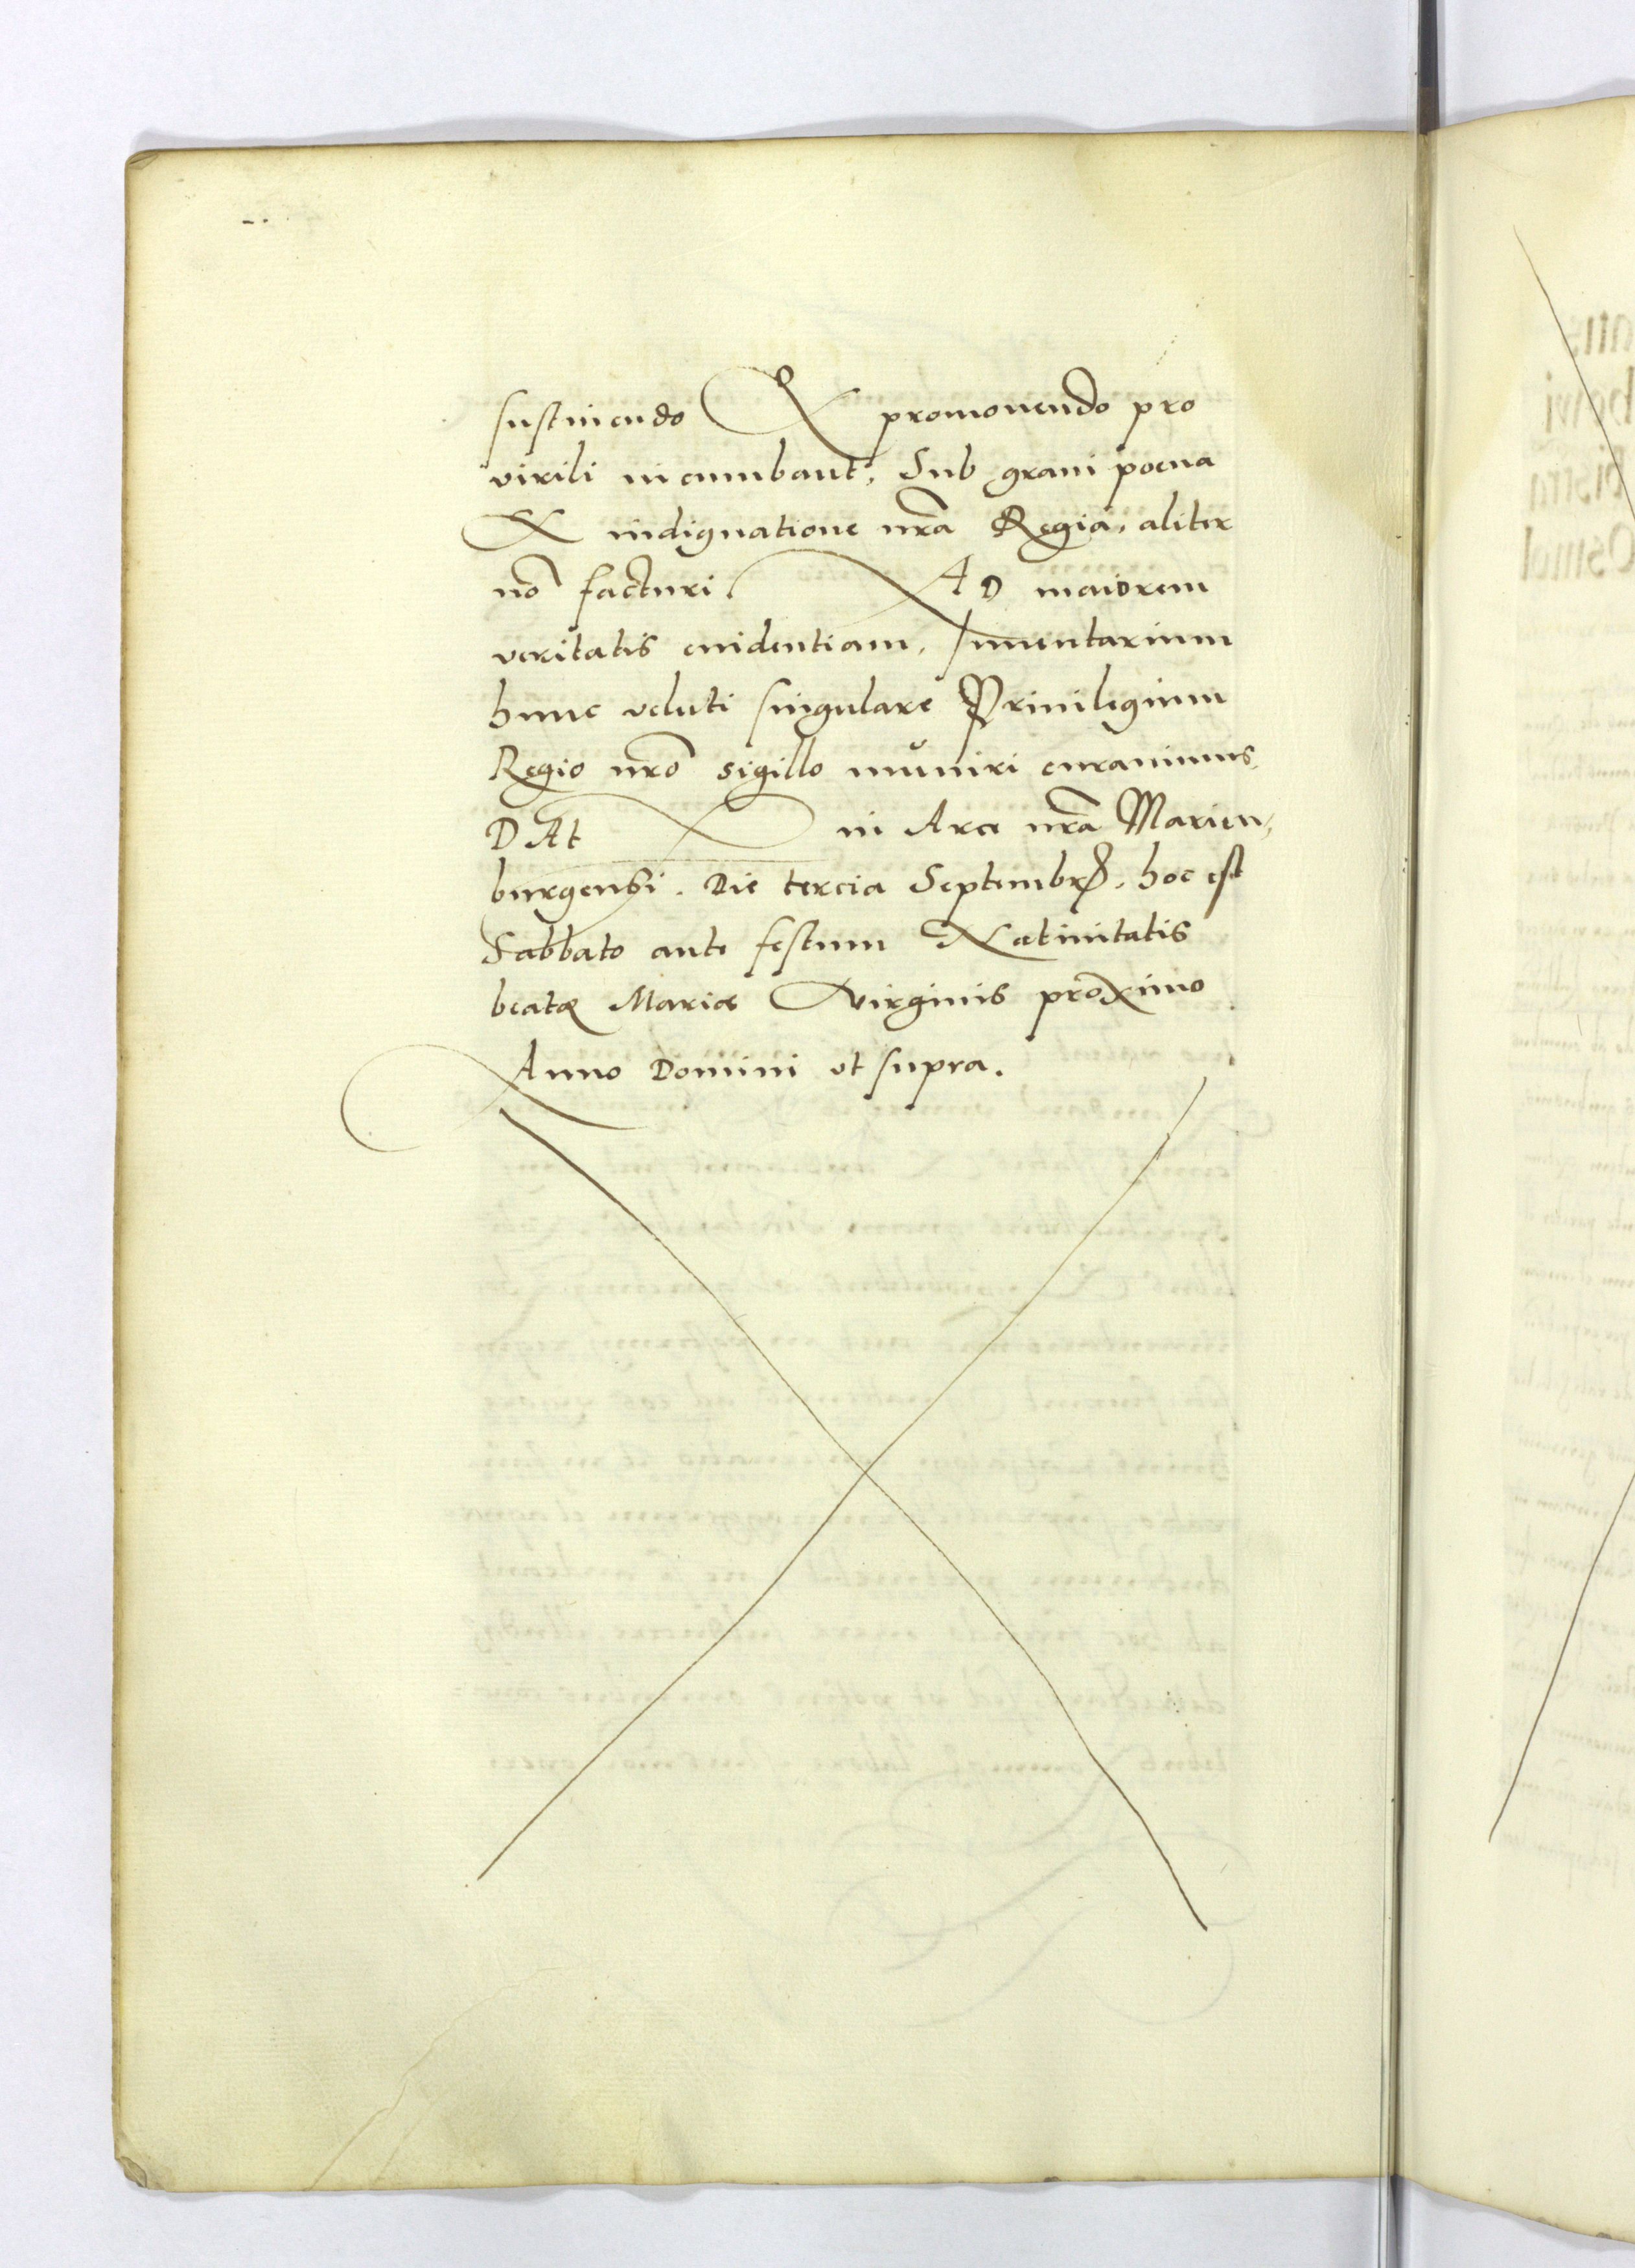 sustinendo & promouendo pro
virili incumbant, Sub graui poena
& indignatione nr̃a Regia, aliter
nõ facturi. AD maiorem
veritatis euidentiam, Inuentarium
hunc veluti singulare Priuilegium
Regio nr̃o sigillo muniri curauimus,
DAt in Arce nr̃a Marien,
burgensi. Die tercia Septembrꝭ, hoc est
Sabbato ante festum Natiuitatis
beatę Mariæ Virginis proximo
Anno Domini vt supra.